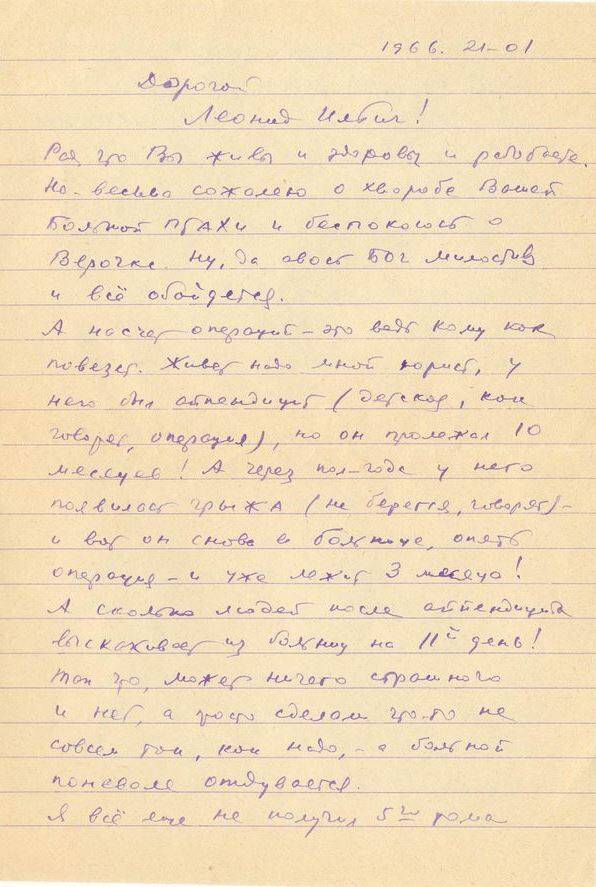 1966. 21-01
Дорогой
Леонид Ильич!
Рад что Вы живы и здоровы и работаете.
Но весьма сожалею о хворобе Вашей
Больной птахи и беспокоюсь о
Верочке. Ну, да авось Бог милостив
и всё обойдется.
А насчет операций – это ведь кому как
повезет. Живет надо мной юрист, у
него был аппендицит (детская, как
говорят, операция), но он пролежал 10
месяцев! А через пол-года у него
появилась грыжа (не берегся, говорят) –
и вот он снова в больнице, опять
операция – и уже лежит 3 месяца!
А сколько людей после аппендицита
выскакивает из больниц на 11й день!
Так что, может ничего страшного
и нет, а просто сделали что-то не
совсем так, как надо, – а больной
поневоле отдувается.
Я всё еще не получил 5го тома